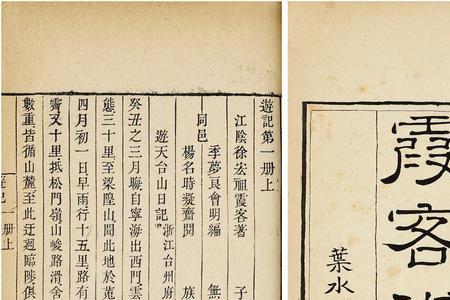 霞客
葉水
遊記第一册上
江陰徐宏祖霞客著 子
同邑
季夢良會明編 無
楊名時凝齋閱 族
遊天台山日記 浙江台州府
癸丑之三月晦自寧海出西門雲
態三十里至梁隍山聞此地於菟
四月初一日早雨行十五里路有
霽又十里抵松門嶺山峻路滑舍
數重皆循山麓至此迂迴臨陟俱
册上